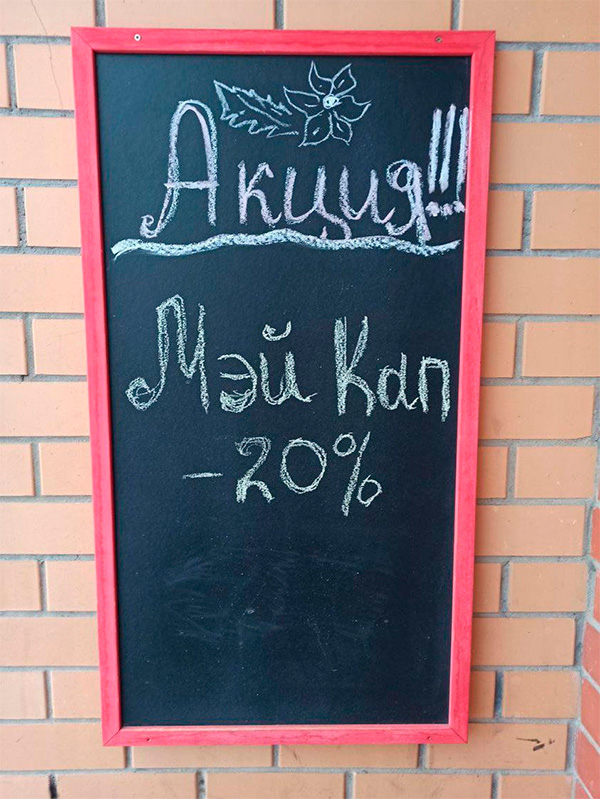 Акция!!!
Мэй Кап
-20%